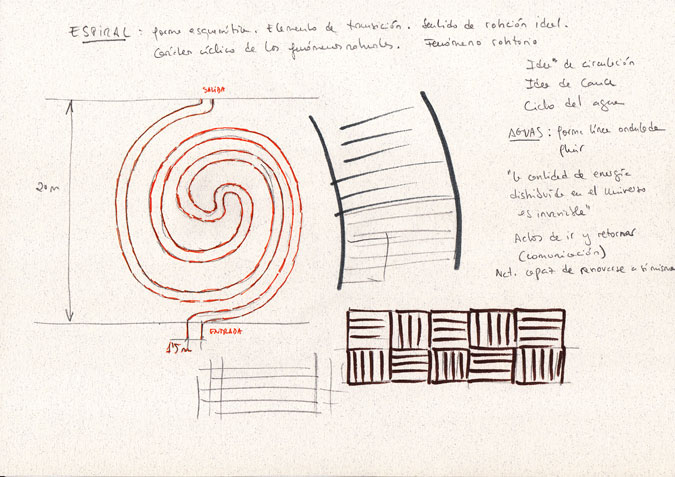 ESPIRAL : forma esquemática. Elemento de transición. Sentido de rotación ideal.
Carácter cíclico de los fenómenos naturales. Fenómeno rotatorio
Idea de circulación
Idea de Cauce
Ciclo del agua
AGUAS : forma línea ondulada
fluir
"la cantidad de energía
distribuida en el Universo
es invariable"
Actos de ir y retornar
(comunicación)
Nat. capaz de renovarse a sí misma
SALIDA
20 m
ENTRADA
1'5 m